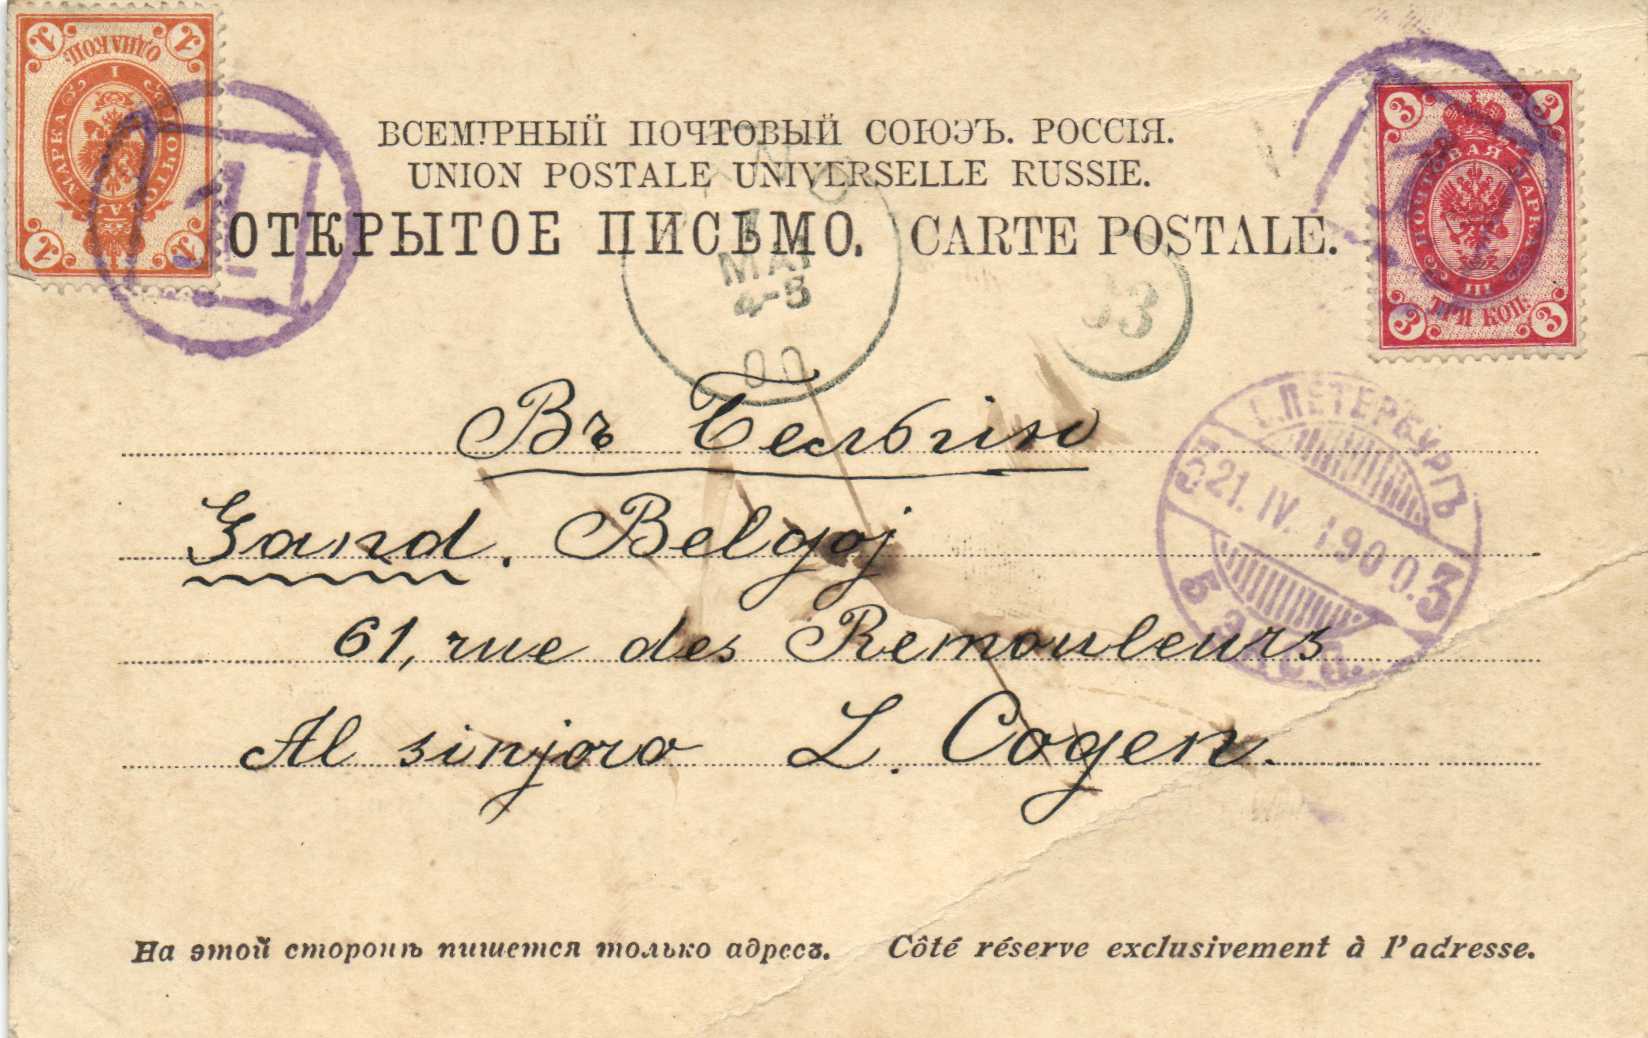 ВСЕМІРНЫЙ ПОЧТОВЫЙ СОЮЭЪ. РОССІЯ.
UNION POSTALE UNIVERSELLE RUSSIE.
ОТКРЫТОЕ ПИСЬМО. CARTE POSTALE.
1 1
ОДНА КОП.
ПОЧТОВАЯ МАРКА
I
1 1
1
3 3
ПОЧТОВАЯ МАРКА
III
ТРИ КОП.
3 3
1
MAI
4-5
00
53
С.ПЕТЕРБУРГЪ
21.IV.1900.3
Въ Бельгію
Gand. Belgoj
61, rue des Remouleurs
Al sinjoro L. Cogen.
На этой сторонѣ пишется только адресъ. Côté réserve exclusivement à l'adresse.